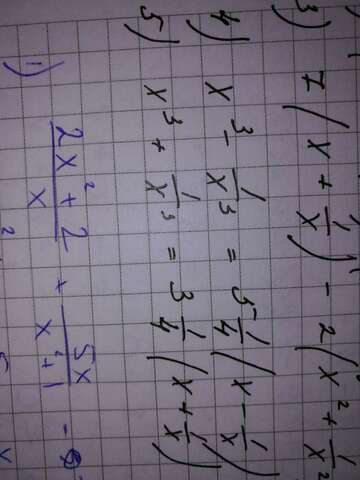 3) 7(x + 1/x) - 2(x² + 1/x²
4) x³ - 1/x³ = 5 1/4 (x - 1/x)
5) x³ + 1/x³ = 3 1/4 (x + 1/x)
1) (2x² + 2)/x + 5x/(x² + 1) -